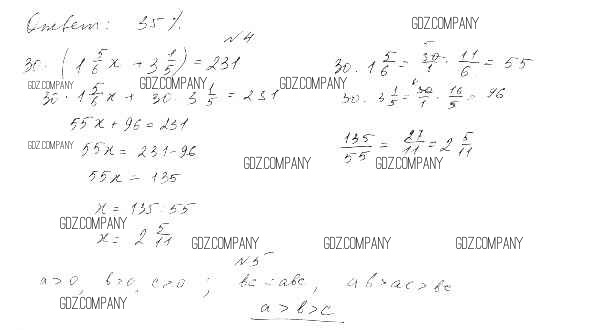 Ответ: 35 %.
GDZ.COMPANY
№4
30 · (1 5/6 x + 3 1/5) = 231
30 · 1 5/6 = 30/1 · 11/6 = 55
GDZ.COMPANY GDZ.COMPANY GDZ.COMPANY
30 · 1 5/6 x + 30 · 3 1/5 = 231
30 · 3 1/5 = 30/1 · 16/5 = 96
55x + 96 = 231
GDZ.COMPANY
55x = 231 - 96
135/55 = 27/11 = 2 5/11
GDZ.COMPANY GDZ.COMPANY
55x = 135
x = 135 : 55
GDZ.COMPANY
x = 2 5/11
GDZ.COMPANY GDZ.COMPANY GDZ.COMPANY
№5
a>0, b>0, c>0 ; bc = abc, ab > ac > bc
GDZ.COMPANY
a > b > c